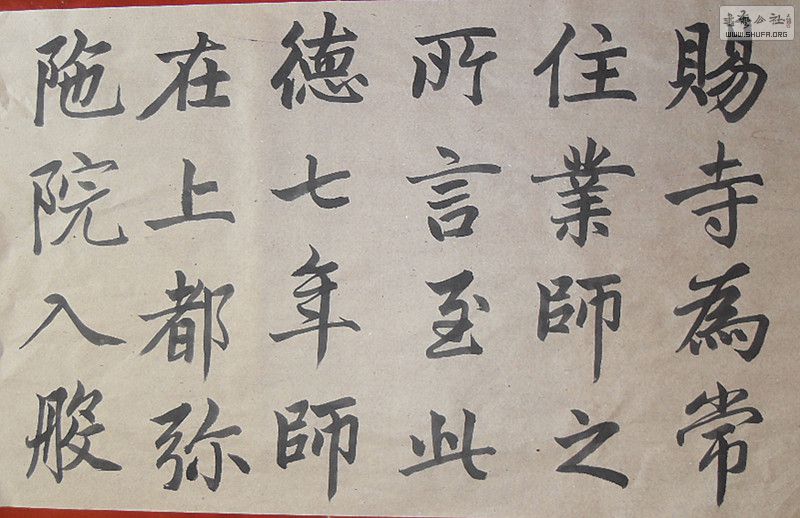 賜寺為常
住業師之
所言至此
德七年師
在上都弥
陁院入般
書藝公社
WWW.SHUFA.ORG